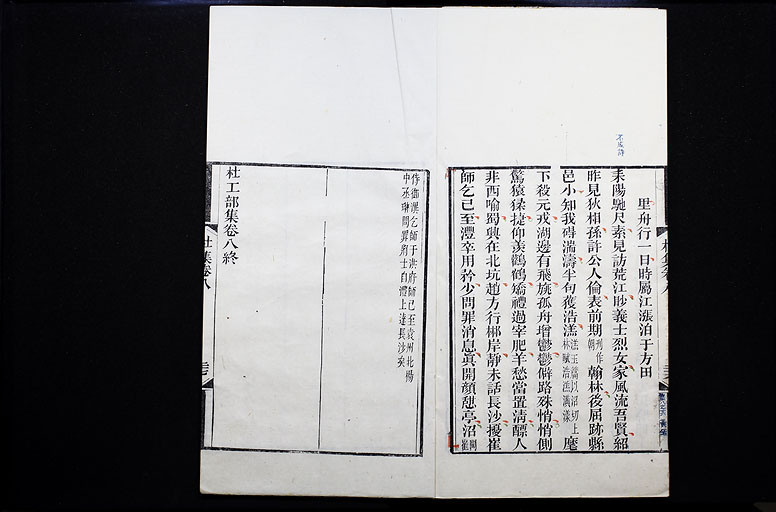 不成詩
里舟行一日時屬江漲泊于方田
耒陽馳尺素見訪荒江眇義士烈女家風流吾賢紹
昨見狄相孫許公人倫表前期刋作朝翰林後屈跡縣
邑小知我礙湍濤半旬獲浩溔溔玉篇以沼切上林賦浩溔潢漾麾
下殺元戎湖邊有飛旐孤舟增鬱鬱僻路殊悄悄側
驚猿猱捷仰羨鸛鶴矯禮過宰肥羊愁當置淸醥人
非西喻蜀興在北坑趙方行郴岸靜未話長沙擾崔
師乞已至澧卒用矜少問罪消息眞開顏憩亭沼聞崔
侍御潩乞師于洪府師已至袁州北楊
中丞琳問罪將士自澧上達長沙矣
杜工部集卷八終
杜集卷八